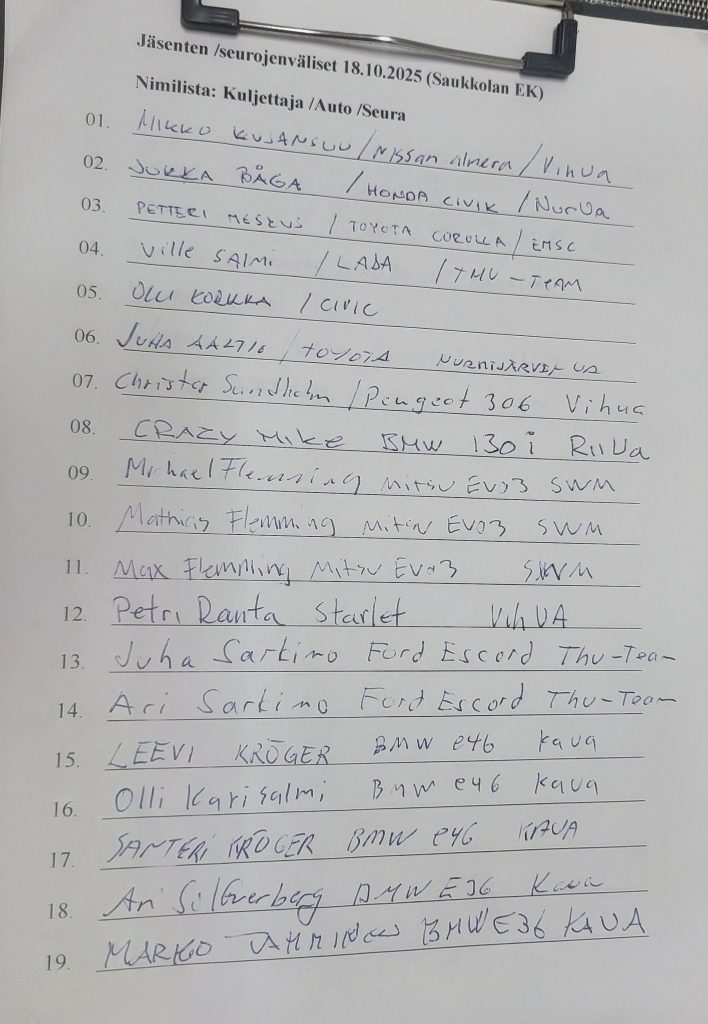 Jäsenten /seurojenväliset 18.10.2025 (Saukkolan EK)
Nimilista: Kuljettaja /Auto /Seura
01. MIKKO KUJANSUU / NISSAN almera / VihUa
02. JUKKA BÅGA / HONDA CIVIK / NurUa
03. PETTERI / TOYOTA COROLLA / EMSC
04. Ville SALMI / LADA / THU-TEAM
05. OLLI / CIVIC
06. JUHA AALTIO / TOYOTA NURMIJÄRVEN UA
07. Christer Sundholm / Peugeot 306 Vihua
08. CRAZY Mike BMW 130i RIIUa
09. Michael Flemming Mitsu EVO3 SWM
10. Mathias Flemming Mitsu EVO3 SWM
11. Max Flemming Mitsu EVO3 SWM
12. Petri Ranta Starlet VihUA
13. Juha Sarkimo Ford Escord Thu-Team
14. Ari Sarkimo Ford Escord Thu-Team
15. LEEVI KRÖGER BMW e46 kaua
16. Olli Karisalmi Bmw e46 kaua
17. SANTERI KRÖGER BMW e46 KAUA
18. Ari Silfverberg BMW E36 Kaua
19. MARKO TAMMINEN BMW E36 KAUA